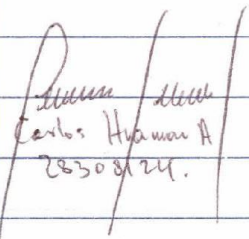 Carlos Huaman A
28308124.